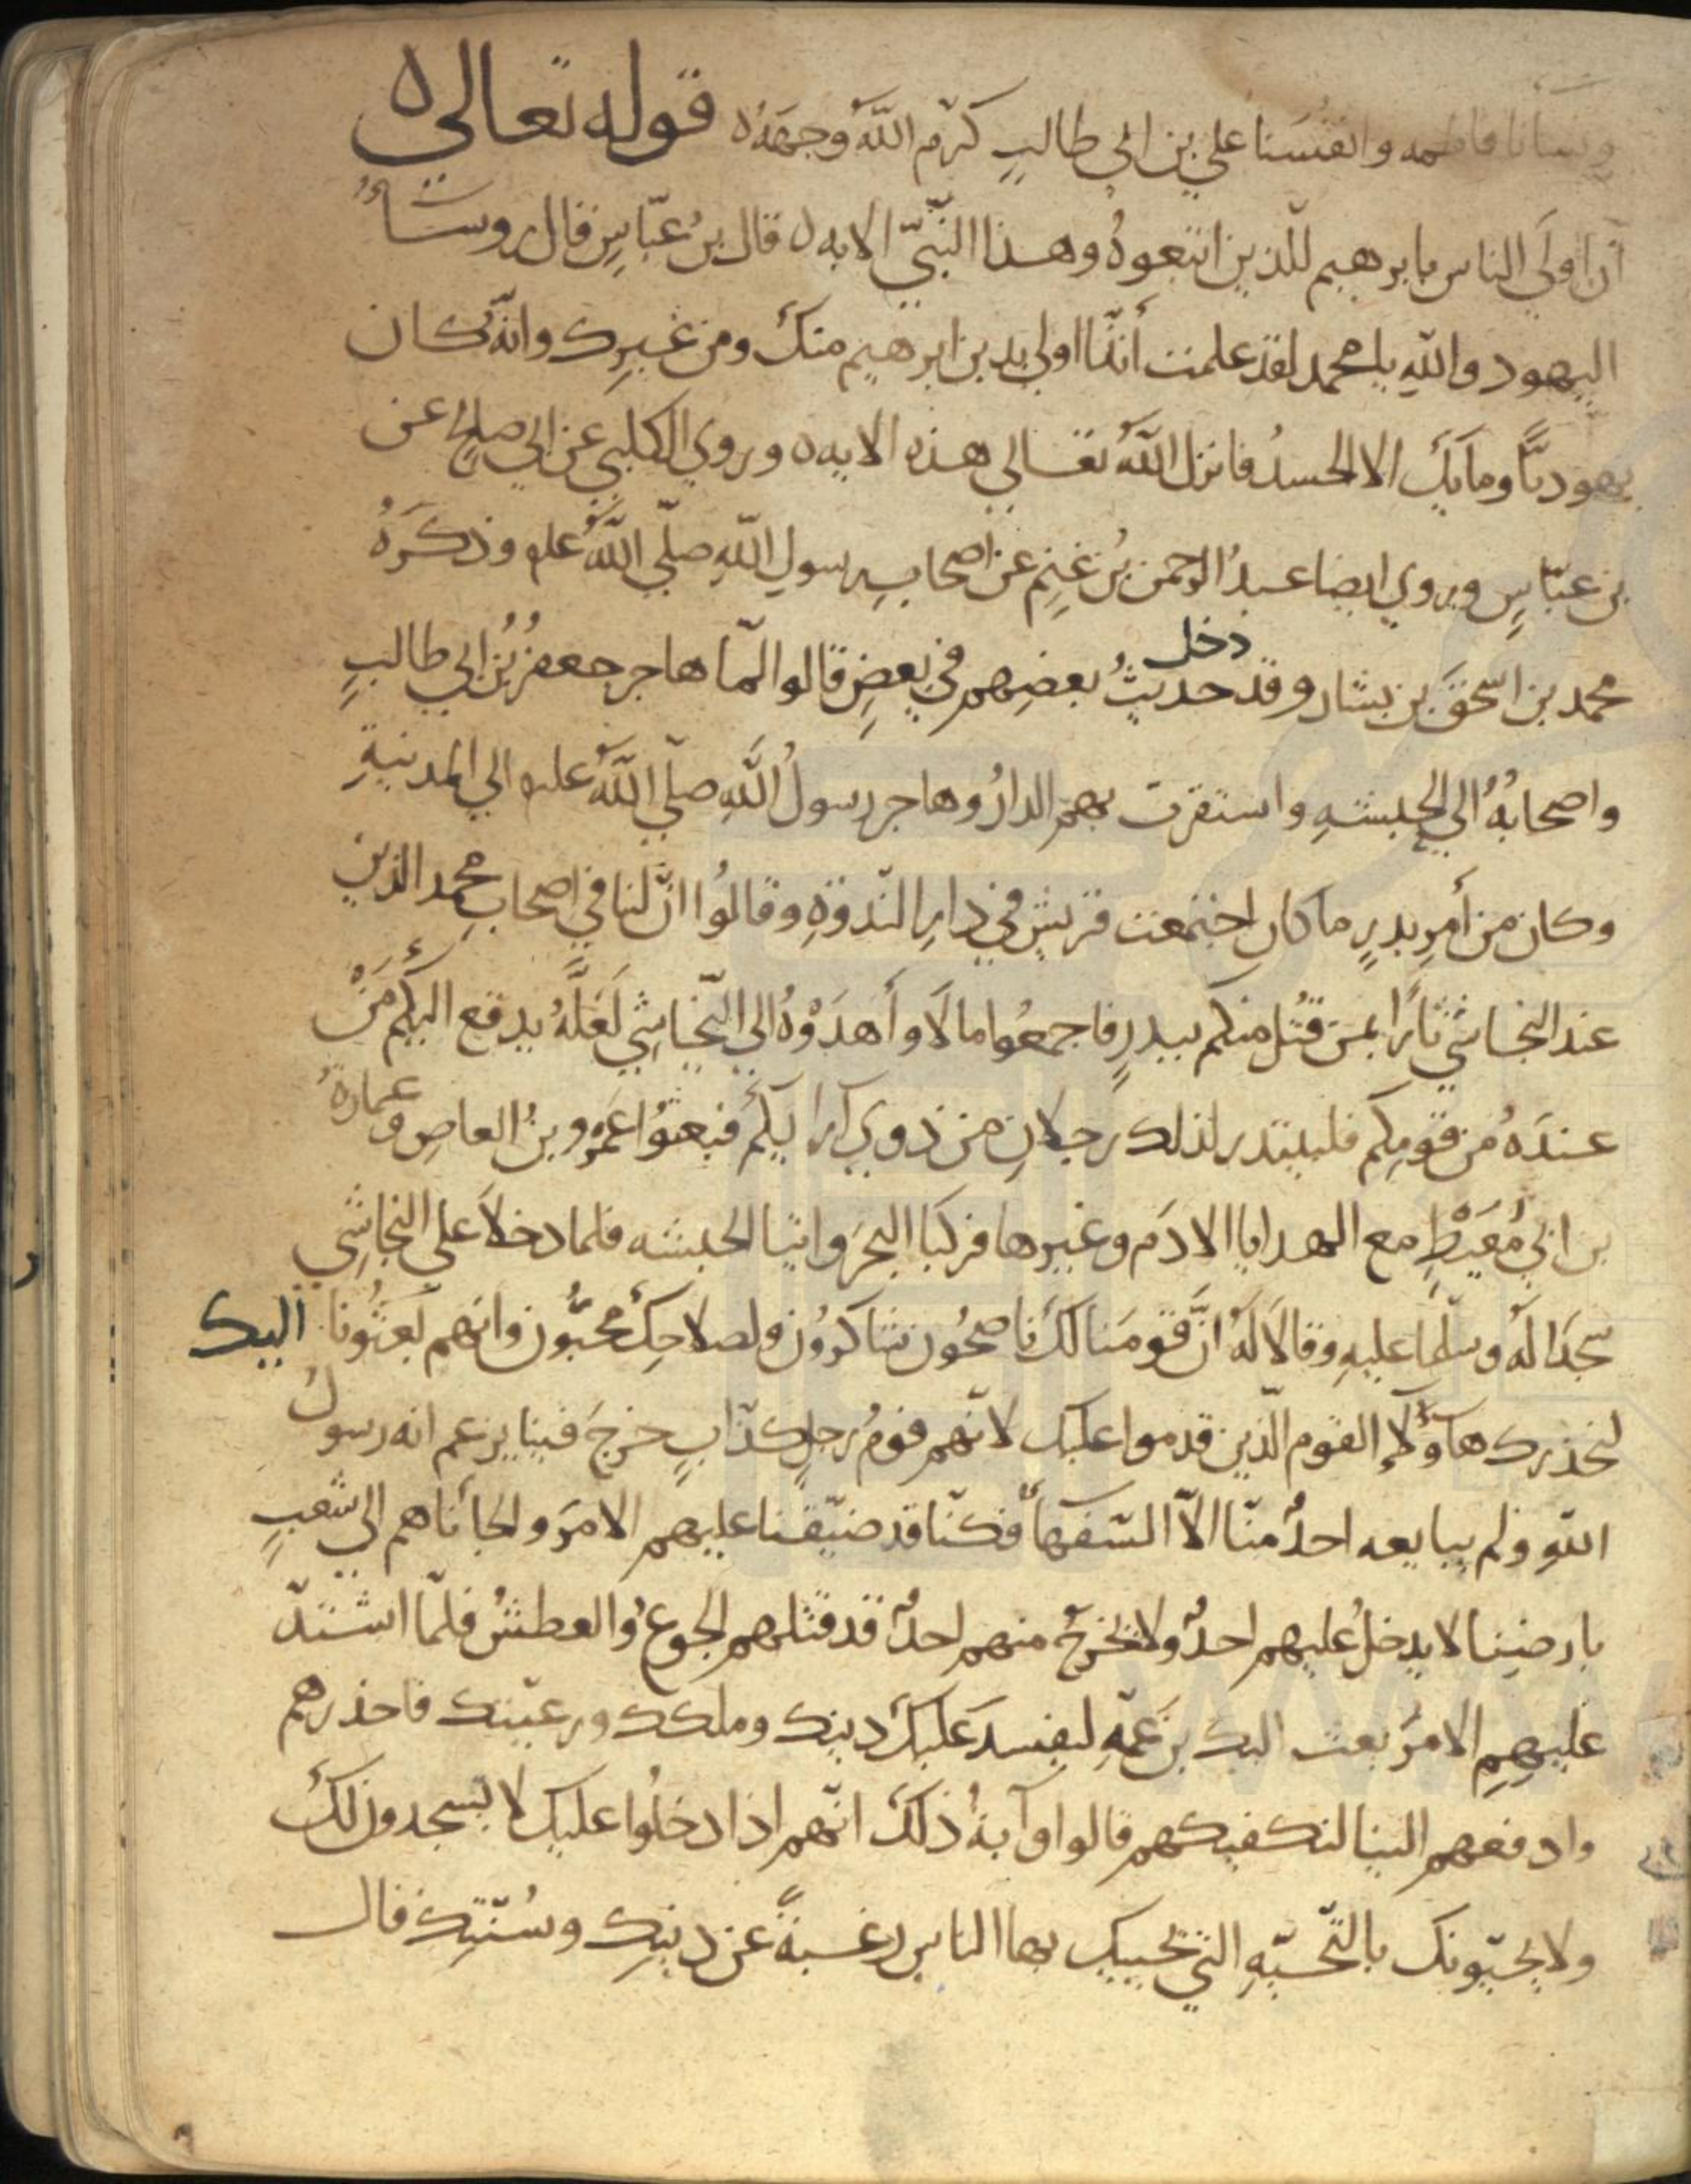 ونسأنا فاطمه وانفسنا علي بن ابي طالبٍ كرّم اللّه وجهَهُ ه قوله تعالى ه
ان اولي الناس بابرهيم للّذين اتبعوهُ وهذا النّبيّ الايه ه قال بنُ عبّاسٍ قال روسَآءُ
اليهود واللّهِ يا محمد لقد علمت أنّا اولي بدين ابرهيم منك ومن غيرِك وانّه كان
يهوديًّا وما بِكَ الا الحسدُ فانزل اللّهُ تعالي هذه الايه ه وروي الكلبي عن ابي صالحٍ عن
بن عبّاسٍ وروي ايضا عبدُ الرحمن بنُ غنمٍ عن اصحاب رسولِ اللّهِ صلّي اللّهُ علىه وذكَرَهُ
محمد بن اسحقَ بن بشار وقد دخل حديثُ بعضِهم في بعضٍ قالوا لمّا هاجر جعفرُ بنُ ابي طالبٍ
واصحابُهُ الي الحبشهِ واستقرت بهم الدارُ وهاجر رسولُ اللّهِ صلّي اللّهُ علىه الي المدينةِ
وكان من أمرِ بدرٍ ما كان اجتمعت قريش في دارِ النّدوةِ وقالُوا انّ لنا في اصحابِ محمد الذين
عند النجاشي ثارًا بمن قُتل منكم ببدرٍ فاجمعُوا مالًا وأَهدَوْهُ الي النّجاشِي لَعَلَّهُ يدفع اليكُم مَنْ
عندَهُ من قومِكم فليبتدر لذلك رجلانِ من ذوي آرايكم فبعثوُا عَمرو بنُ العاصِ وعمارةُ
بن ابي مُعَيْطٍ مع الهدايا الادَم وغيرها فركبا البحرَ واتيا الحبشه فلما دخلا علي النجاشِي
سجَدا لهُ وسلّما عليهِ وقالَا لهُ انَّ قومَنا لكَ ناصحُون شاكرُون ولصلاحِكَ محبُّون وانهم بعثُونا اليك
لنحذرك هآؤلاء القوم الّذين قدموا عليك لانّهم قومُ رجلٍ كذّابٍ خرجَ فينا يزعم انه رسولُ
اللّهِ ولم يبايعه احدٌ منّا الاّ السّفهآ فكنّا قد ضيّقنا عليهم الامرَ والجأناهم الي شعبٍ
بارضِينا لا يدخلُ عليهم احدٌ ولا يخرجُ منهم احدٌ قد قتلهم الجوعُ والعطشُ فلمّا اشتدّ
عليهِمِ الامرُ بعث اليك بن عمّهِ ليفسدَ عليكَ دينك وملكك ورعيّتك فاحذرهم
وادفعهم الينا لنكفيكهم قالوا وآيةُ ذلكَ انّهم اذا دخلُوا عليك لا يسجدون لكَ
ولا يحيّونك بالتّحيّةِ التي يحييك بها الناس رغبةً عن دينِك وسُنّتِك قال